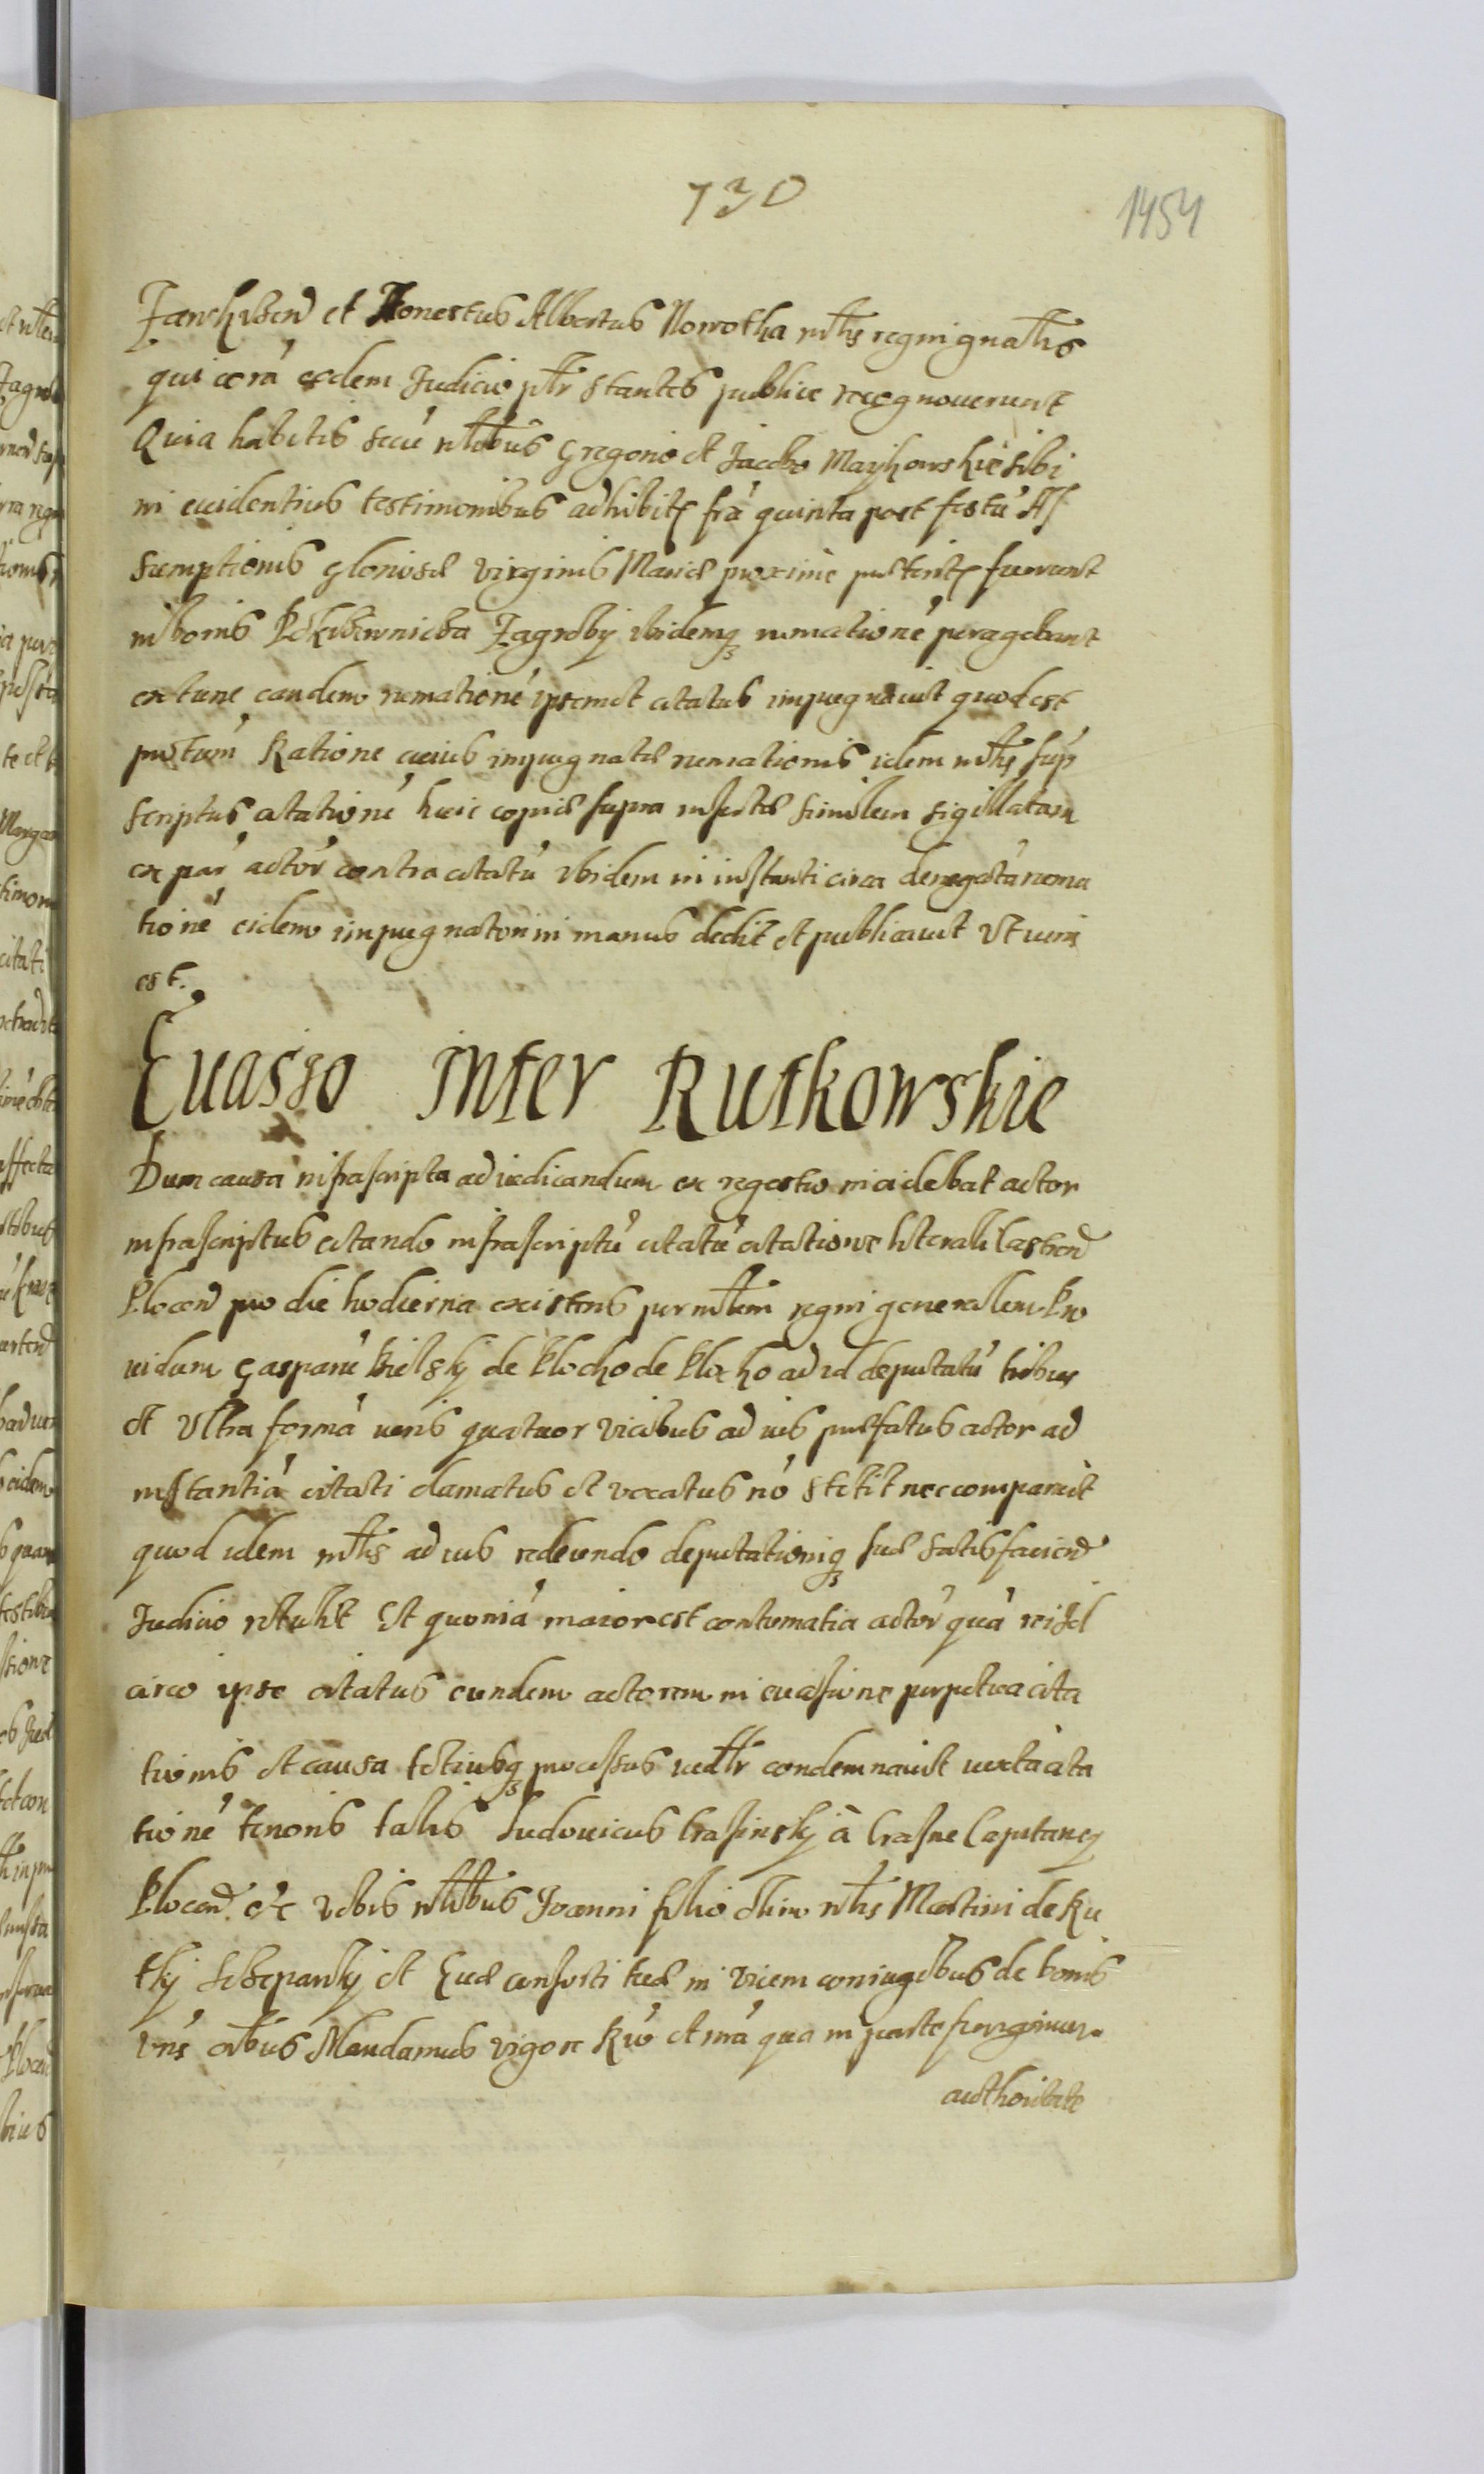 730
1454
et Honestus Albertus Nowotka mtris regni gnalis
qui corā eodem Judicio pltr stantes publice recognouerunt
Quia habitis secū nlibus Gregorio et Jacobo sibi
in euidentius testimonibus adhibit fra quinta post festū As
sumptionis gloriosæ virginis Mariæ proxime fuerunt
in bonis Zagroby ibidemq peragebant
extunc eandem ipsemet citatus impugnauit quod est
Ratione cuius impugnatæ idem mtris sup
scriptus citationē huic copiæ supra insertæ similem sigillatam
ex par actor contra citatū ibidem in instanti circa denegatā
tionē eidem impugnatori in manus dedit et publicauit Vt
est.
Euasio inter Rutkowskie
Dum causa infrascripta ad iudicandum ex regestro incidebat actor
infrascriptus citando infrascriptū citatū citatione literali Castren
Plocen pro die hodierna existens per regni generalem Pro
uidum Gasparū Bielsky de Plocko de Plocko ad id deputatū tribus
et Vltra formā iuris quatuor vicibus ad ius præfatus actor ad
instantiā citati clamatus et vocatus nō stetit nec comparuit
quod idem mtris ad ius redeundo deputationiq suæ satisfaciend
Judicio retulit Et quoniā maior est contumatia actor quā rei Id
circo ipse citatus eundem actorem in euasione perpetua cita
tionis et causa totiusq processus condemnauit iuxta cita
tionē tenoris talis Ludouicus Crasinsky à Crasne Capitaneq
Plocen etc Vobis nlibus Joanni filio olim nlis Martini de Ru
tky et Euæ consorti tuæ in vicem coniugibus de bonis
vris oibus Mandamus vigore et mā qua in parte fungimur
authoritate